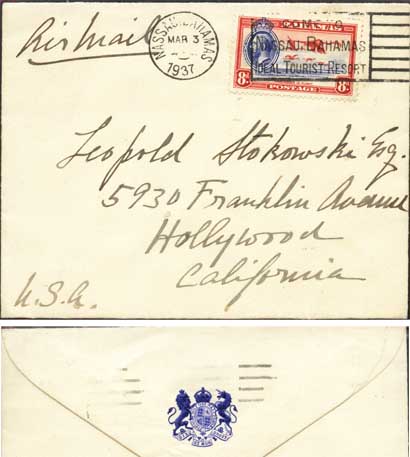 Air Mail
NASSAU · BAHAMAS
MAR 3
1937
COME TO
NASSAU, BAHAMAS
IDEAL TOURIST RESORT
8ᵈ POSTAGE 8ᵈ
Leopold Stokowski Esq.
5930 Franklin Avenue
Hollywood
California
U.S.A.